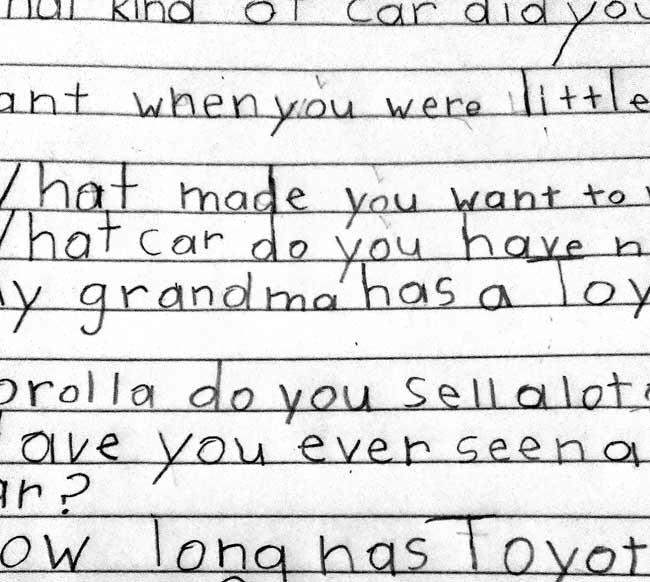 hat kind of car did you
ant when you were little
hat made you want to
hat car do you have n
y grandma has a Toy
orolla do you sell a lot
ave you ever seen a
ar?
ow long has Toyot